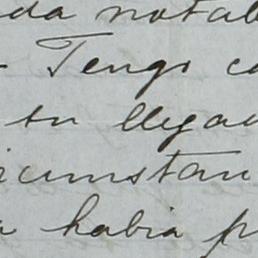 da notab
Tengo co
tu llegad
cumstan
habia p